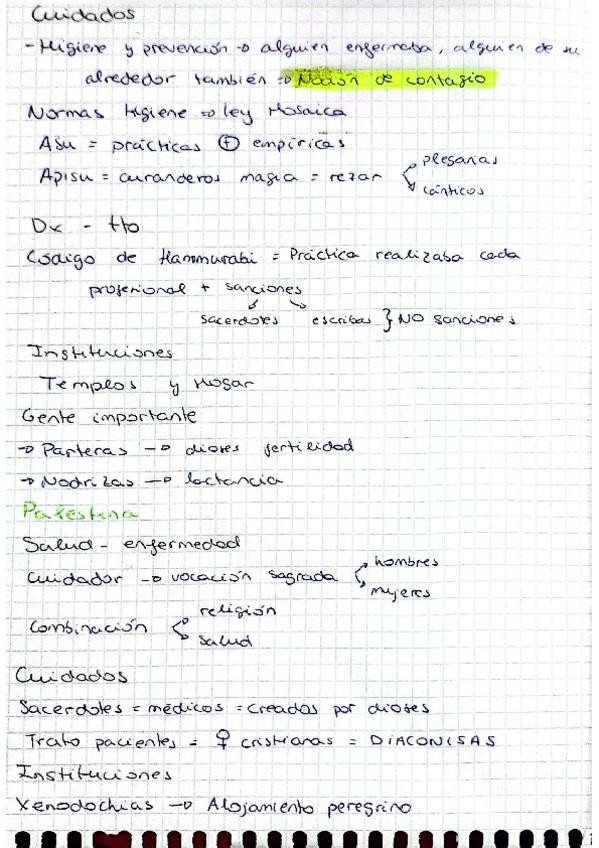 Cuidados
- Higiene y prevención → alguien enfermaba, alguien de su
alrededor también → Noción de contagio
Normas Higiene → ley Mosaica
Asu = prácticas ⊕ empíricas
Apisu = curanderos magia = rezar plegarias
cánticos
Dx - tto
Código de Hammurabi = Práctica realizaba cada
profesional + sanciones
sacerdotes escribas } NO sanciones
Instituciones
Templos y Hogar
Gente importante
→ Parteras → dioses fertilidad
→ Nodrizas → lactancia
Palestina
Salud - enfermedad
Cuidador → vocación sagrada hombres
mujeres
Combinación religión
salud
Cuidados
Sacerdotes = médicos = creadas por dioses
Trato pacientes = ♀ cristianas = DIACONISAS
Instituciones
Xenodochias → Alojamiento peregrino